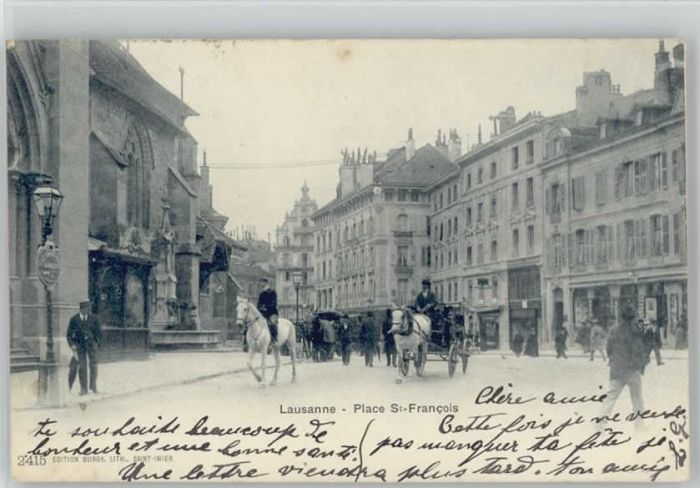 Lausanne - Place St-François
Chère amie
Cette fois je ne veux
pas manquer ta fête je
te souhaite beaucoup de
bonheur et une bonne santé.
Une lettre viendra plus tard. ton amie
2415 EDITION BURGY, LITH., SAINT-IMIER